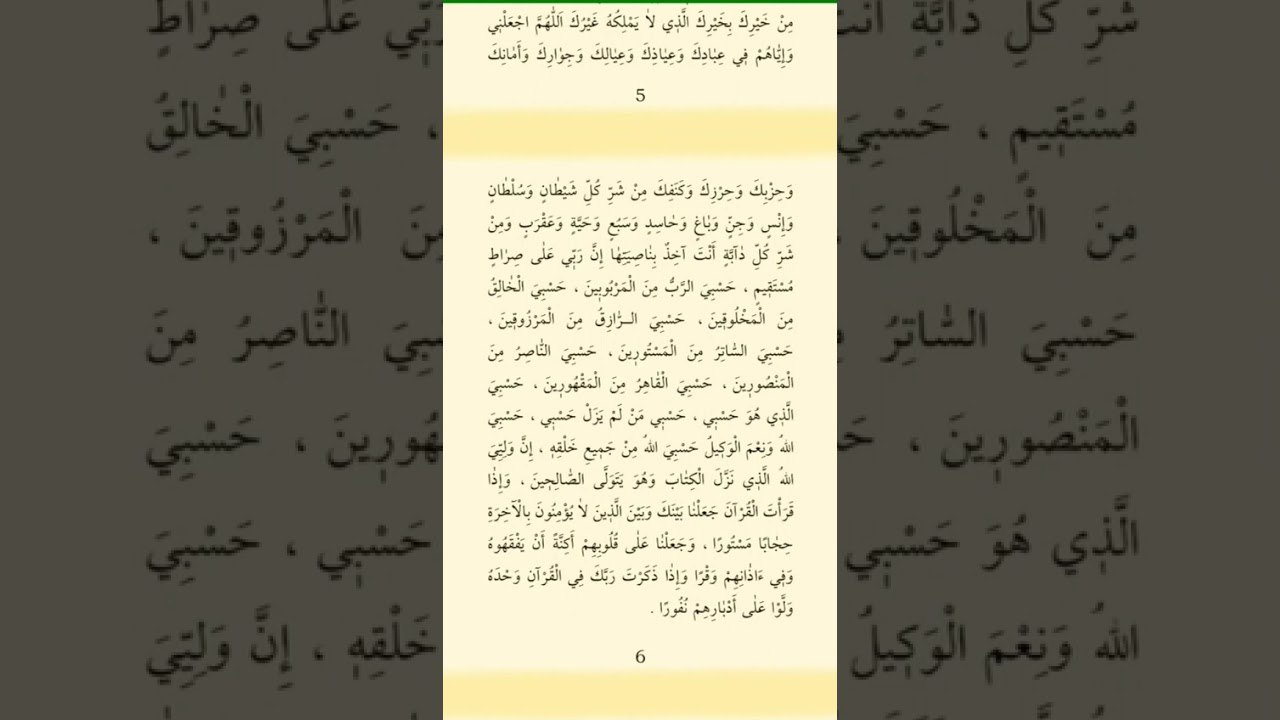 مِنْ خَيْرِكَ بِخَيْرِكَ الَّذِي لَا يَمْلِكُهُ غَيْرُكَ اَللّٰهُمَّ اجْعَلْنِي
وَإِيَّاهُمْ فِي عِبَادِكَ وَعِيَاذِكَ وَعِيَالِكَ وَجِوَارِكَ وَأَمَانِكَ
5
وَحِزْبِكَ وَحِرْزِكَ وَكَنَفِكَ مِنْ شَرِّ كُلِّ شَيْطَانٍ وَسُلْطَانٍ
وَإِنْسٍ وَجِنٍّ وَبَاغٍ وَحَاسِدٍ وَسَبُعٍ وَحَيَّةٍ وَعَقْرَبٍ وَمِنْ
شَرِّ كُلِّ دَآبَّةٍ أَنْتَ آخِذٌ بِنَاصِيَتِهَا إِنَّ رَبِّي عَلٰى صِرَاطٍ
مُسْتَقِيمٍ ، حَسْبِيَ الرَّبُّ مِنَ الْمَرْبُوبِينَ ، حَسْبِيَ الْخَالِقُ
مِنَ الْمَخْلُوقِينَ ، حَسْبِيَ الــرَّازِقُ مِنَ الْمَرْزُوقِينَ ،
حَسْبِيَ السَّاتِرُ مِنَ الْمَسْتُورِينَ ، حَسْبِيَ النَّاصِرُ مِنَ
الْمَنْصُورِينَ ، حَسْبِيَ الْقَاهِرُ مِنَ الْمَقْهُورِينَ ، حَسْبِيَ
الَّذِي هُوَ حَسْبِي ، حَسْبِي مَنْ لَمْ يَزَلْ حَسْبِي ، حَسْبِيَ
اللهُ وَنِعْمَ الْوَكِيلُ حَسْبِيَ اللهُ مِنْ جَمِيعِ خَلْقِهِ ، إِنَّ وَلِيِّيَ
اللهُ الَّذِي نَزَّلَ الْكِتَابَ وَهُوَ يَتَوَلَّى الصَّالِحِينَ ، وَإِذَا
قَرَأْتَ الْقُرْآنَ جَعَلْنَا بَيْنَكَ وَبَيْنَ الَّذِينَ لَا يُؤْمِنُونَ بِالْآخِرَةِ
حِجَابًا مَسْتُورًا ، وَجَعَلْنَا عَلٰى قُلُوبِهِمْ أَكِنَّةً أَنْ يَفْقَهُوهُ
وَفِي ءَاذَانِهِمْ وَقْرًا وَإِذَا ذَكَرْتَ رَبَّكَ فِي الْقُرْآنِ وَحْدَهُ
وَلَّوْا عَلٰى أَدْبَارِهِمْ نُفُورًا .
6